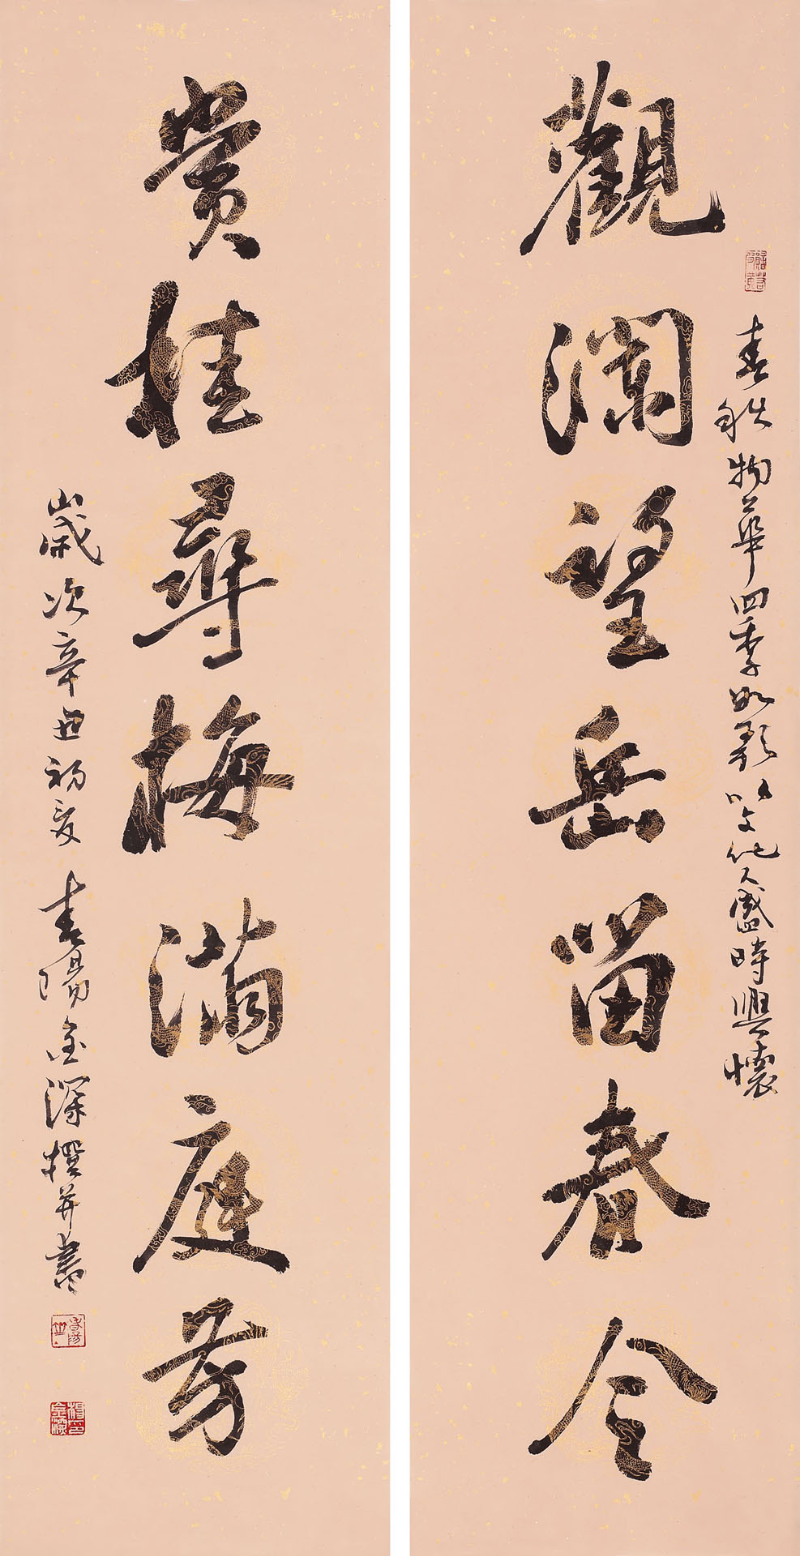 春秋物華四季如歌以文化人盛時興懷
觀瀾望岳留春令
賞桂尋梅滿庭芳
歲次辛丑初夏春陽深撰并書